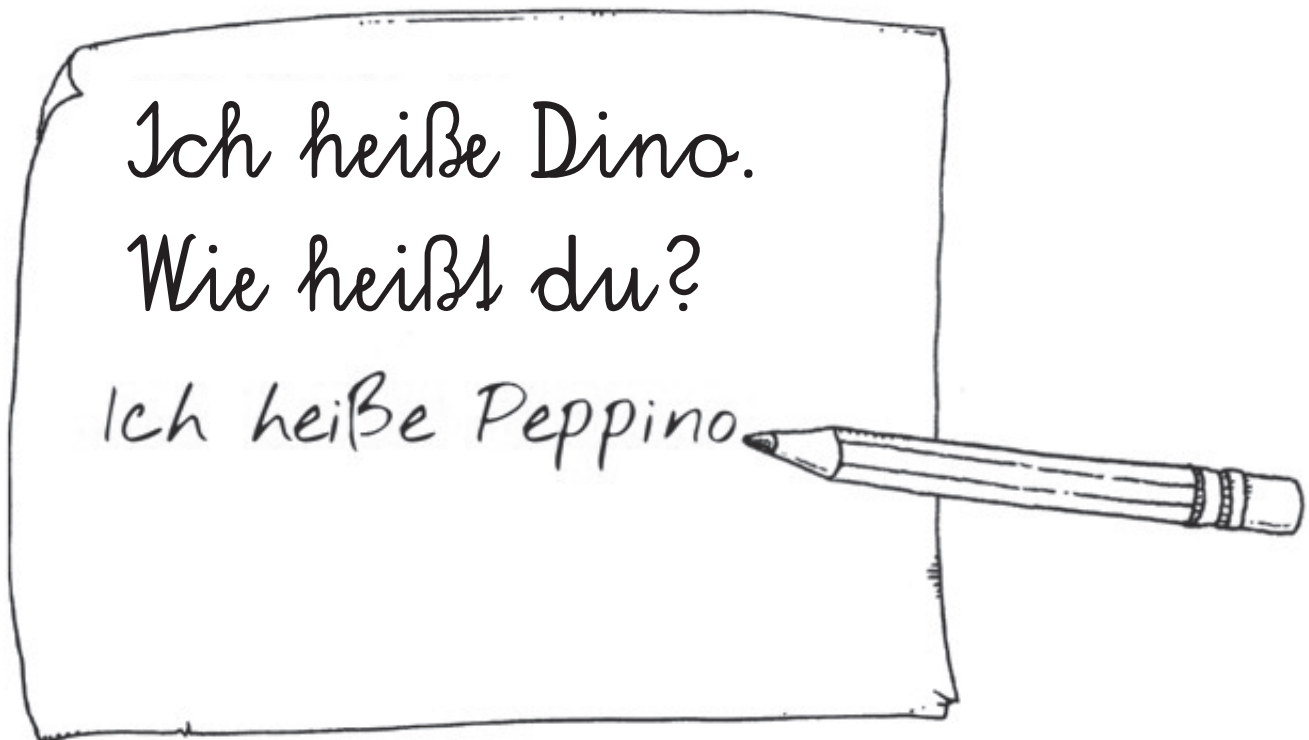 Ich heiße Dino.
Wie heißt du?
Ich heiße Peppino